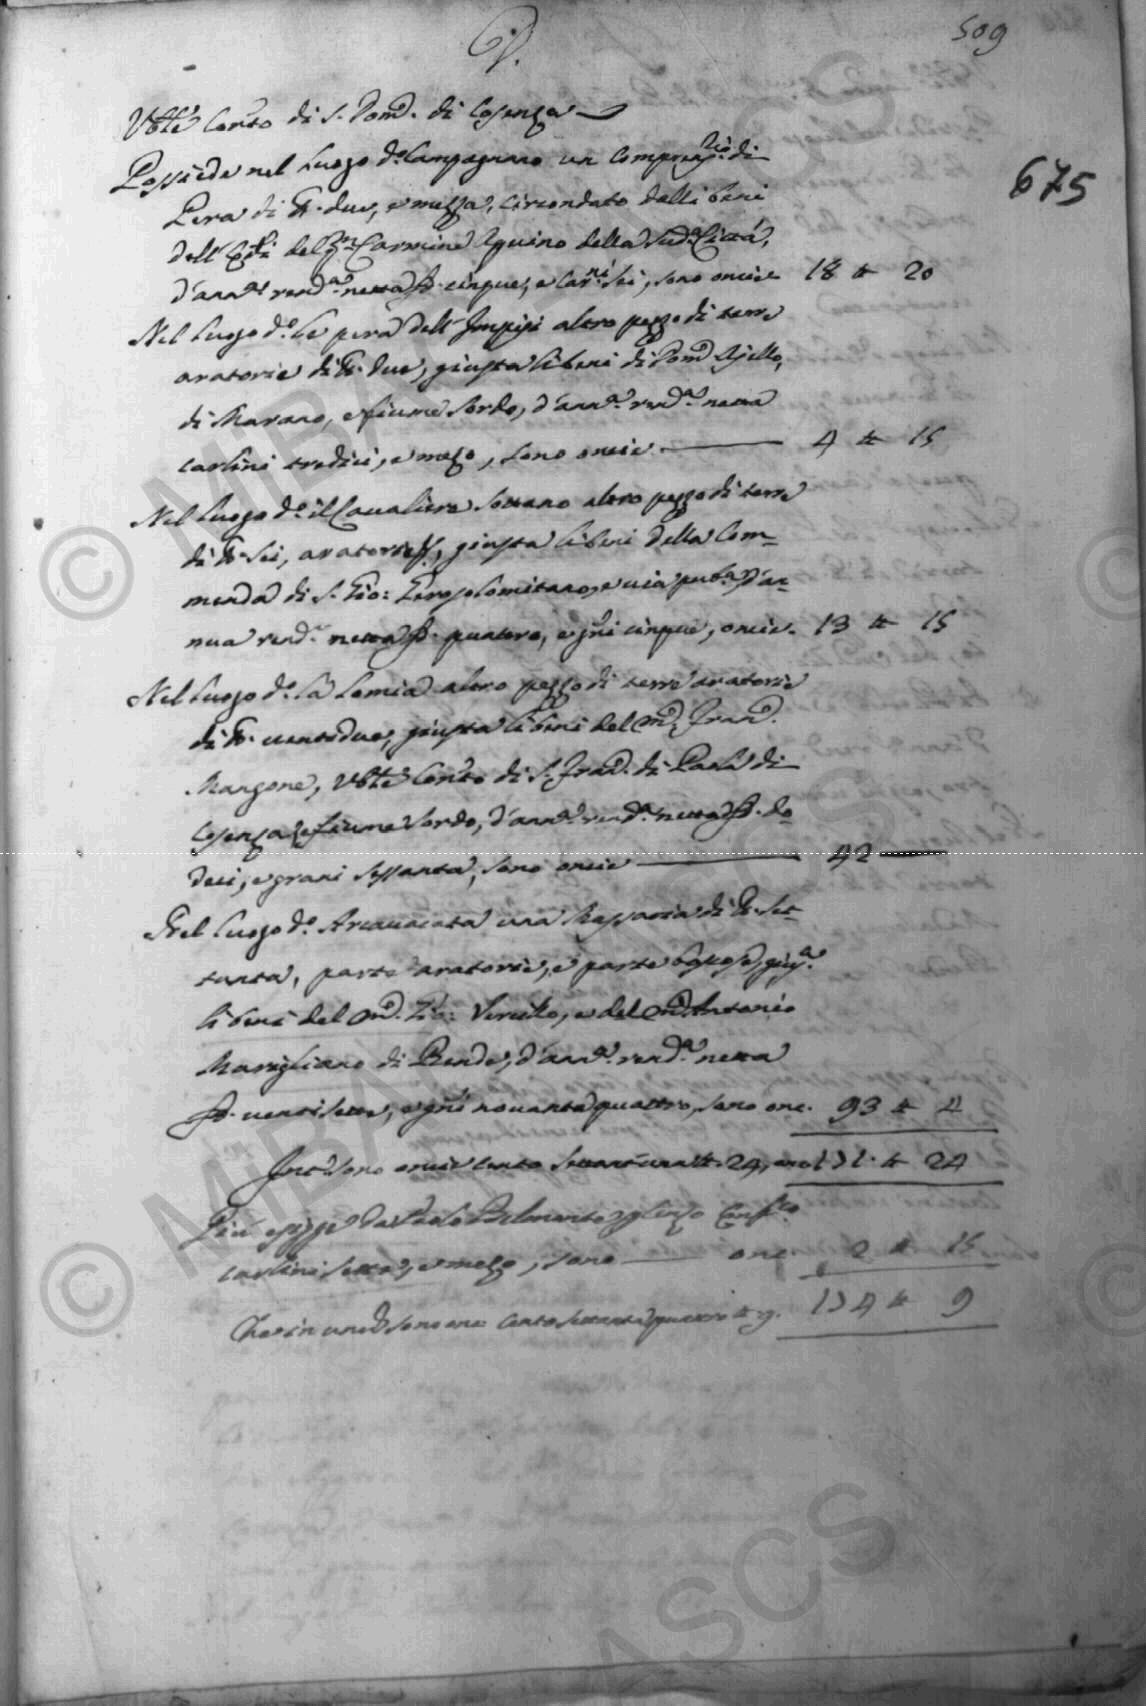 509
V.
675
Vble Conto di S. Dom.co di Cosenza
Possiede nel luogo d.o Campagnano un comprens.rio di
Terra di tt. due, e mezza, circondato dalli beni
dell' del Carmine Aquino della sud.a Città,
d'ann.l rend.a netta D. cinque, e car.ni sei, sono oncie 18 tt 20
Nel luogo d.o le pera dell' altro pezzo di terre
aratorie di tt. due, giusta li beni di Dom.co Ajello,
di Marano, e fiume Sordo, d'ann.a rend.a netta
carlini tredici, e mezo, sono oncie 4 tt 15
Nel luogo d.o il Cavaliere sottano altro pezzo di terre
di tt. sei, aratorie, giusta li beni della Com=
menda di S. Gio: Gerosolomitano, e via pub.a d'an=
nua rend.a netta D. quattro, e g.ni cinque, oncie. 13 tt 15
Nel luogo d.o la Lomia altro pezzo di terre aratorie
di tt. ventidue, giusta li beni del M.co Fran.co
Mangone, Vble Conto di S. Fran.co di Paola di
Cosenza, e fiume Sordo, d'ann.a rend.a netta D. do=
deci, e grani sessanta, sono oncie 42
Nel luogo d.o Arcavacata una Massaria di tt. set=
tanta, parte aratorie, e parte boscose, gius.a
li beni del M.co Gio: Vercillo, e del M.co Antonio
Marigliano di Rende, d'ann.a rend.a netta
D. ventisette, e g.ni novanta quattro, sono onc. 93 tt 4
sono oncie cento settant'una tt. 24, onc. 171. tt 24
Più esigge da Paolo Belmonto
carlini sette, e mezo, sono onc. 2 tt 15
Che in uno sono onc. cento settanta quattro tt 9. 174 tt 9
© MiBAC ASCS
© MiBAC ASCS
© MiBAC ASCS